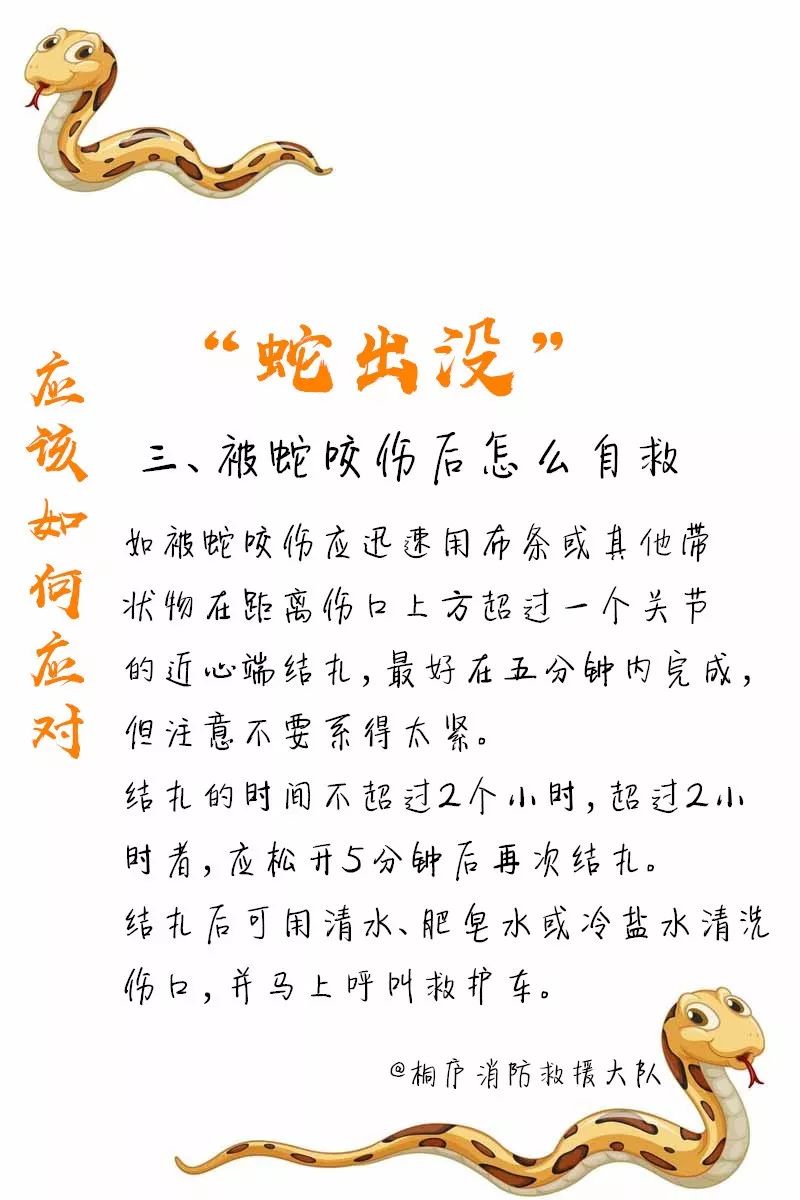 “蛇出没”
应该如何应对
三、被蛇咬伤后怎么自救
如被蛇咬伤应迅速用布条或其他带
状物在距离伤口上方超过一个关节
的近心端结扎,最好在五分钟内完成,
但注意不要系得太紧。
结扎的时间不超过2个小时,超过2小
时者,应松开5分钟后再次结扎。
结扎后可用清水、肥皂水或冷盐水清洗
伤口,并马上呼叫救护车。
@桐庐消防救援大队